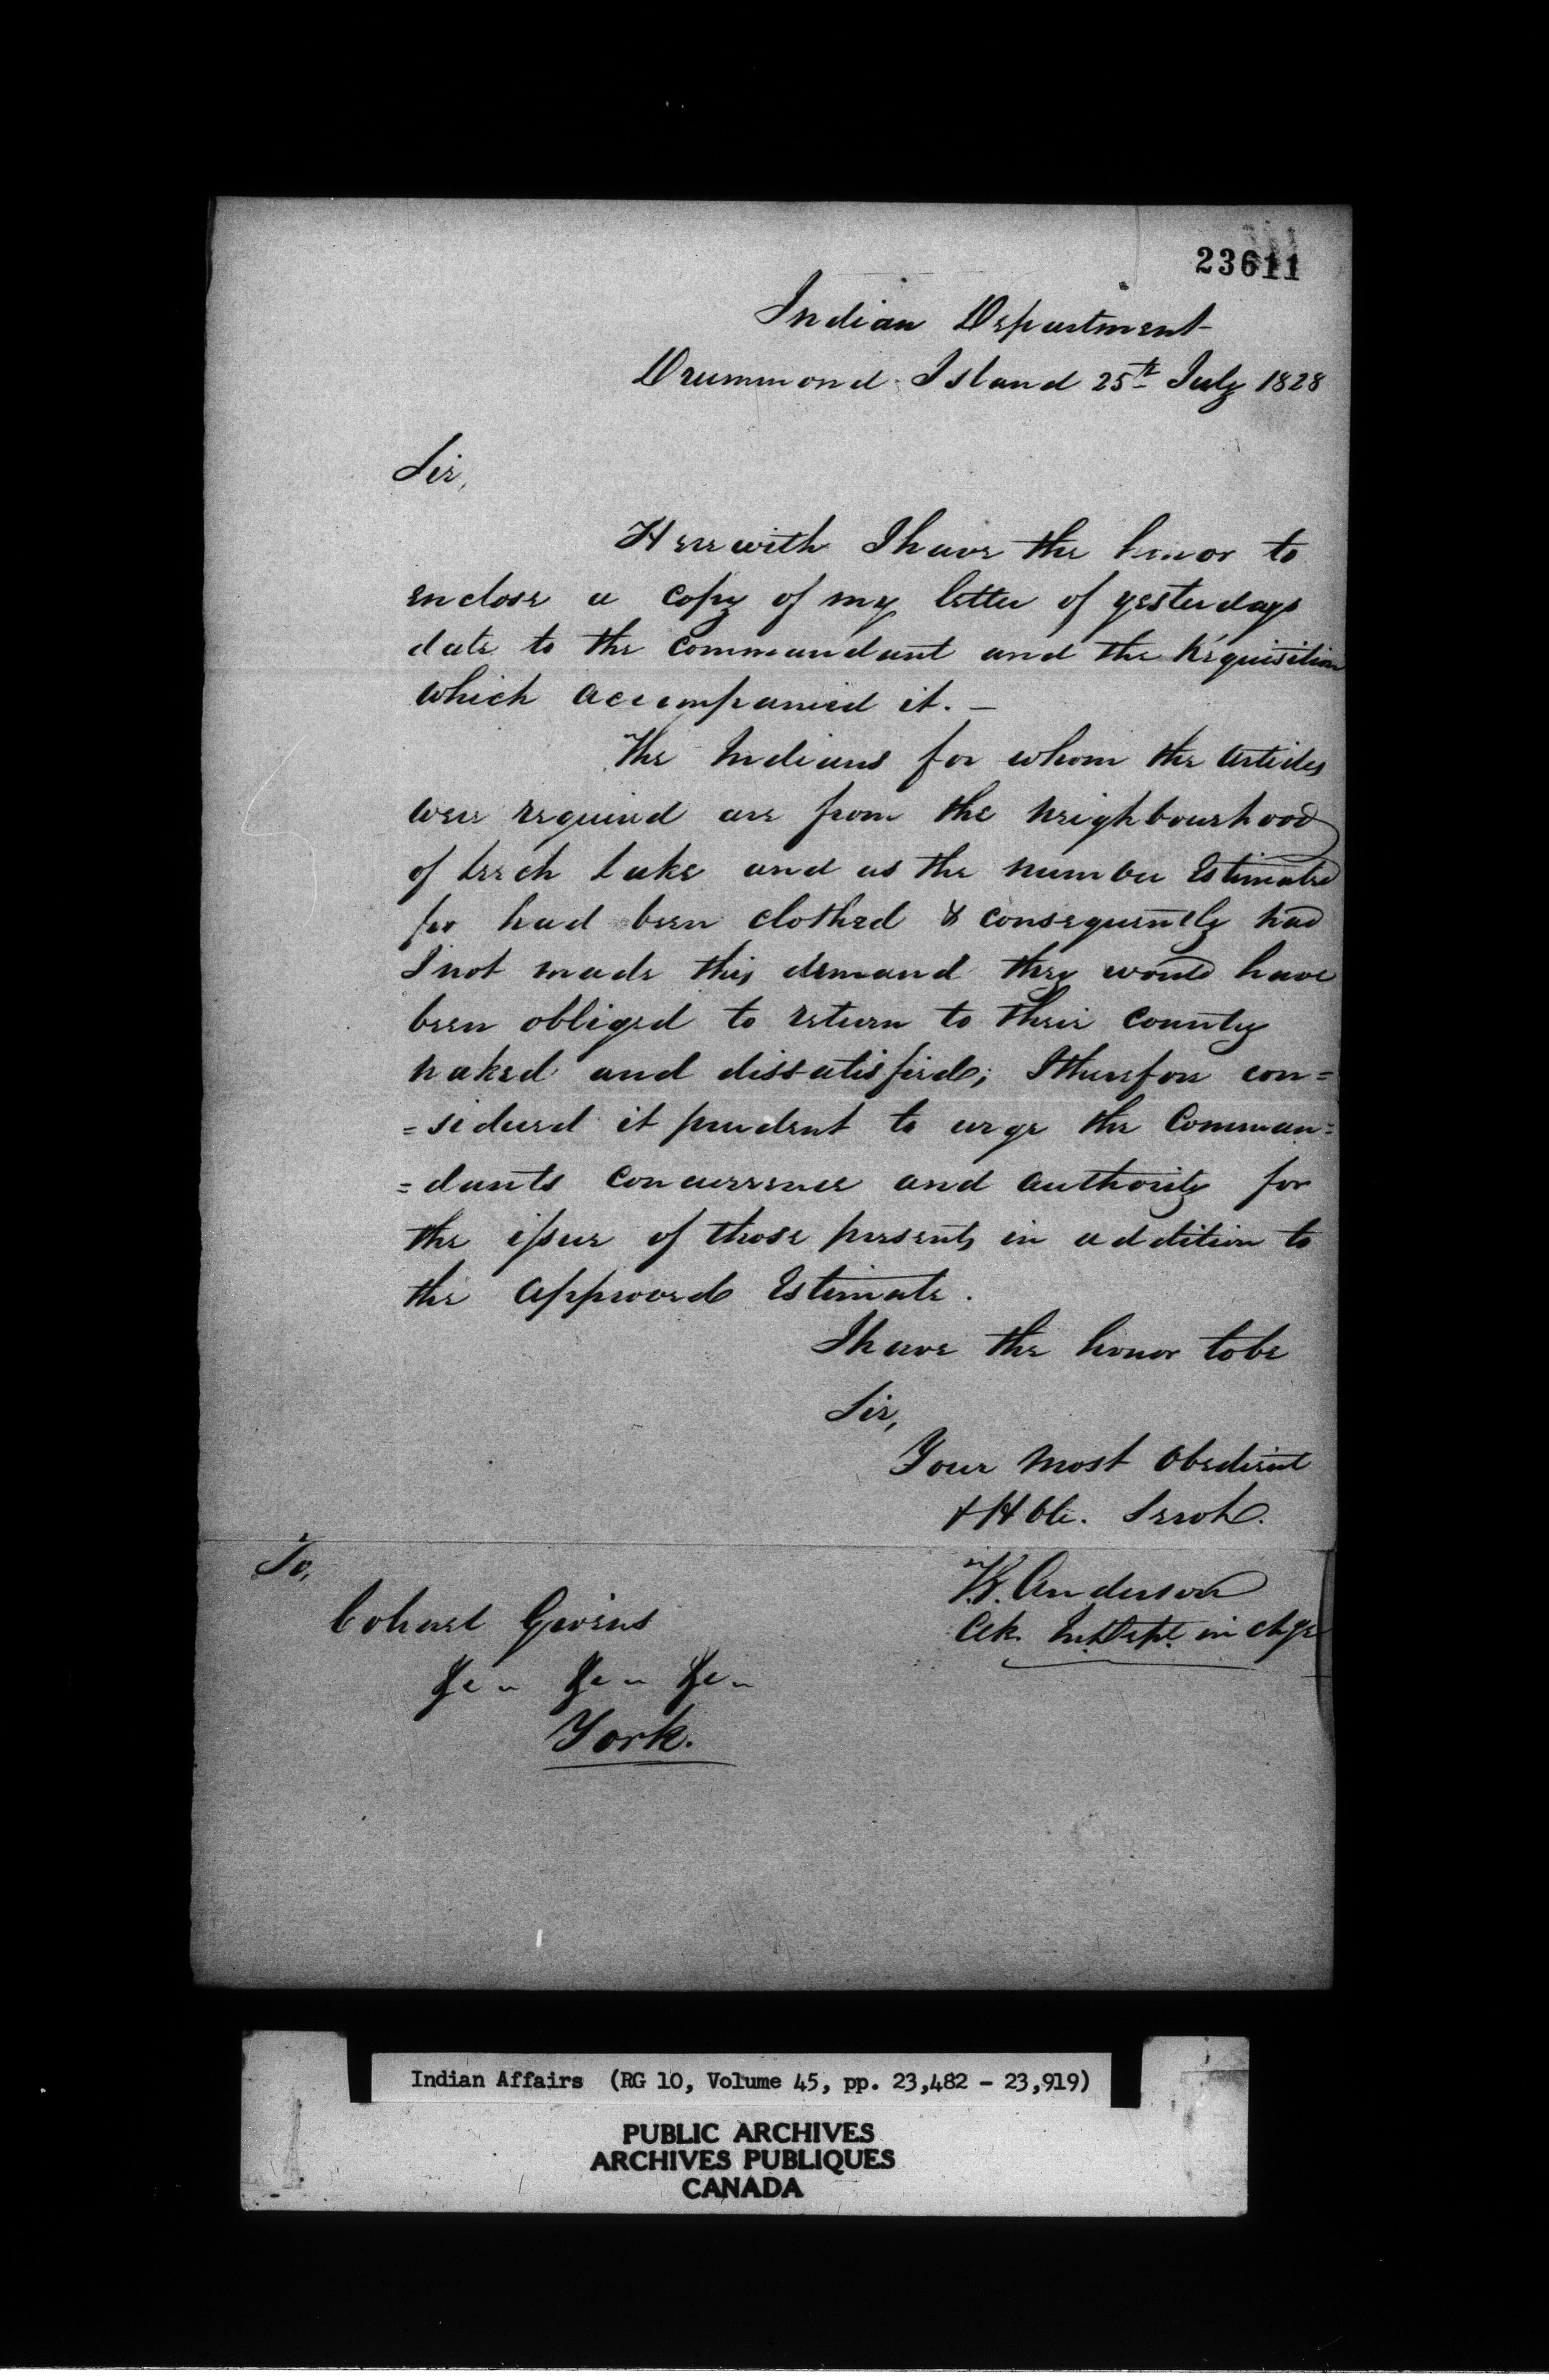 23611
Indian Department
Drummond Island 25th July 1828
Sir,
Herewith I have the honor to
enclose a copy of my letter of yesterdays
date to the Commandant and the Requisition
which accompanied it. —
The Indians for whom the articles
were required are from the neighbourhood
of Leech Lake and as the number Estimated
for had been clothed & consequently had
I not made this demand they would have
been obliged to return to their country
naked and dissatisfied; I therefore con=
=sidered it prudent to urge the Comman=
=dants concurrence and authority for
the issue of those presents in addition to
the approved Estimate.
I have the honor to be
Sir,
Your most obedient
& Hble. Servt.
Anderson
Clk. In. Dept. in chge
To,
Colonel Givins
&c &c &c
York.
Indian Affairs (RG 10, Volume 45, pp. 23,482 - 23,919)
PUBLIC ARCHIVES
ARCHIVES PUBLIQUES
CANADA